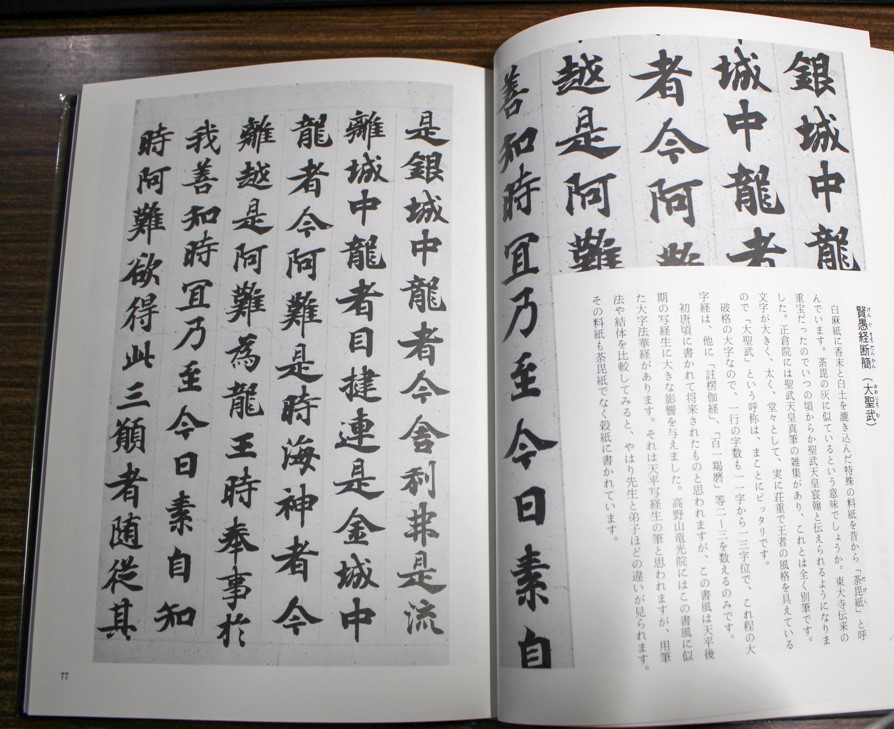 銀城中龍
城中龍者
者今阿難
越是阿難
善知時冝乃至今日素自
賢愚経断簡(大聖武)
白麻紙に香末と白土を漉き込んだ特殊の料紙を昔から「荼毘紙」と呼
んでいます。荼毘の灰に似ているという意味でしょうか。東大寺伝来の
重宝だったのでいつの頃からか聖武天皇宸翰と伝えられるようになりま
した。正倉院には聖武天皇真筆の雑集があり、これとは全く別筆です。
文字が大きく、太く、堂々として、実に荘重で王者の風格を具えている
ので「大聖武」という呼称は、まことにピッタリです。
破格の大字なので、一行の字数も一一字から一三字位で、これ程の大
字経は、他に「註楞伽経」、「百一羯磨」等二〜三を数えるのみです。
初唐頃に書かれて将来されたものと思われますが、この書風は天平後
期の写経生に大きな影響を与えました。高野山竜光院にはこの書風に似
た大字法華経があります。それは天平写経生の筆と思われますが、用筆
法や結体を比較してみると、やはり先生と弟子ほどの違いが見られます。
その料紙も荼毘紙でなく穀紙に書かれています。
是銀城中龍者今舎利弗是流
離城中龍者目揵連是金城中
龍者今阿難是時海神者今
離越是阿難為龍王時奉事於
我善知時冝乃至今日素自知
時阿難欲得此三願者随従其
77